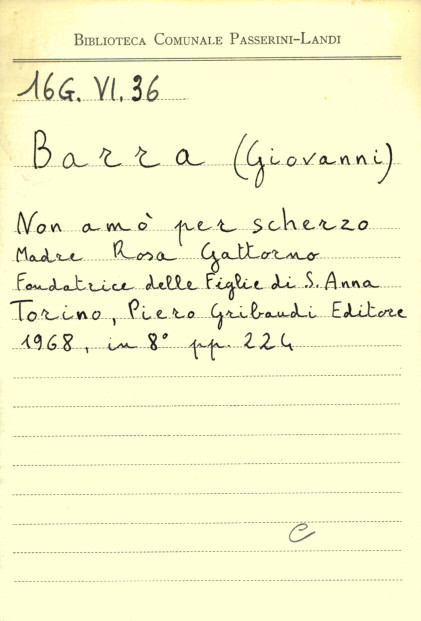 BIBLIOTECA COMUNALE PASSERINI-LANDI
16G. VI. 36
Barra (Giovanni)
Non amò per scherzo
Madre Rosa Gattorno
Fondatrice delle Figlie di S. Anna
Torino, Piero Gribaudi Editore
1968, in 8° pp. 224
C